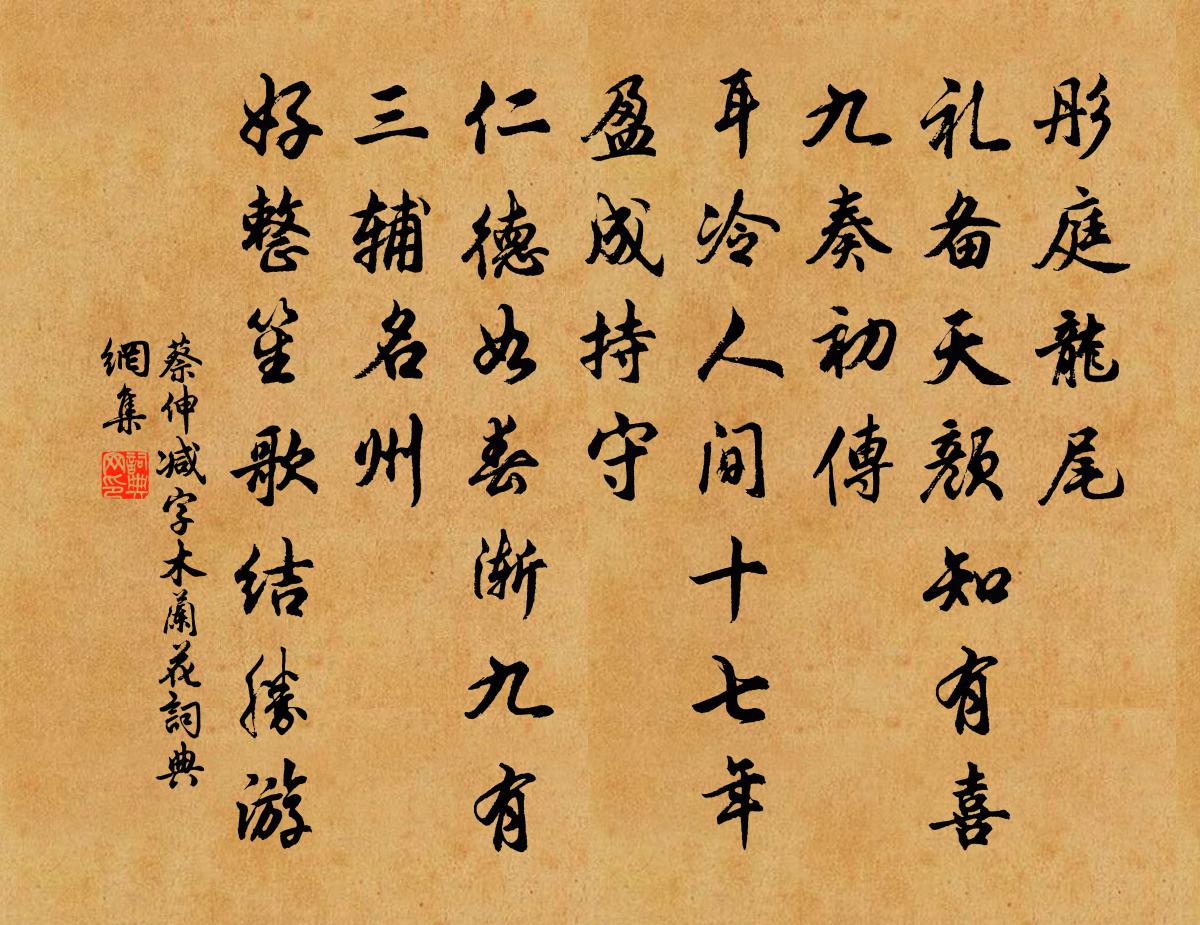 彤庭龍尾
礼备天颜知有喜
九奏初傳
耳冷人间十七年
盈成持守
仁德如春渐九有
三辅名州
好整笙歌结勝游
蔡伸减字木蘭花詞典
網集
詞典网印